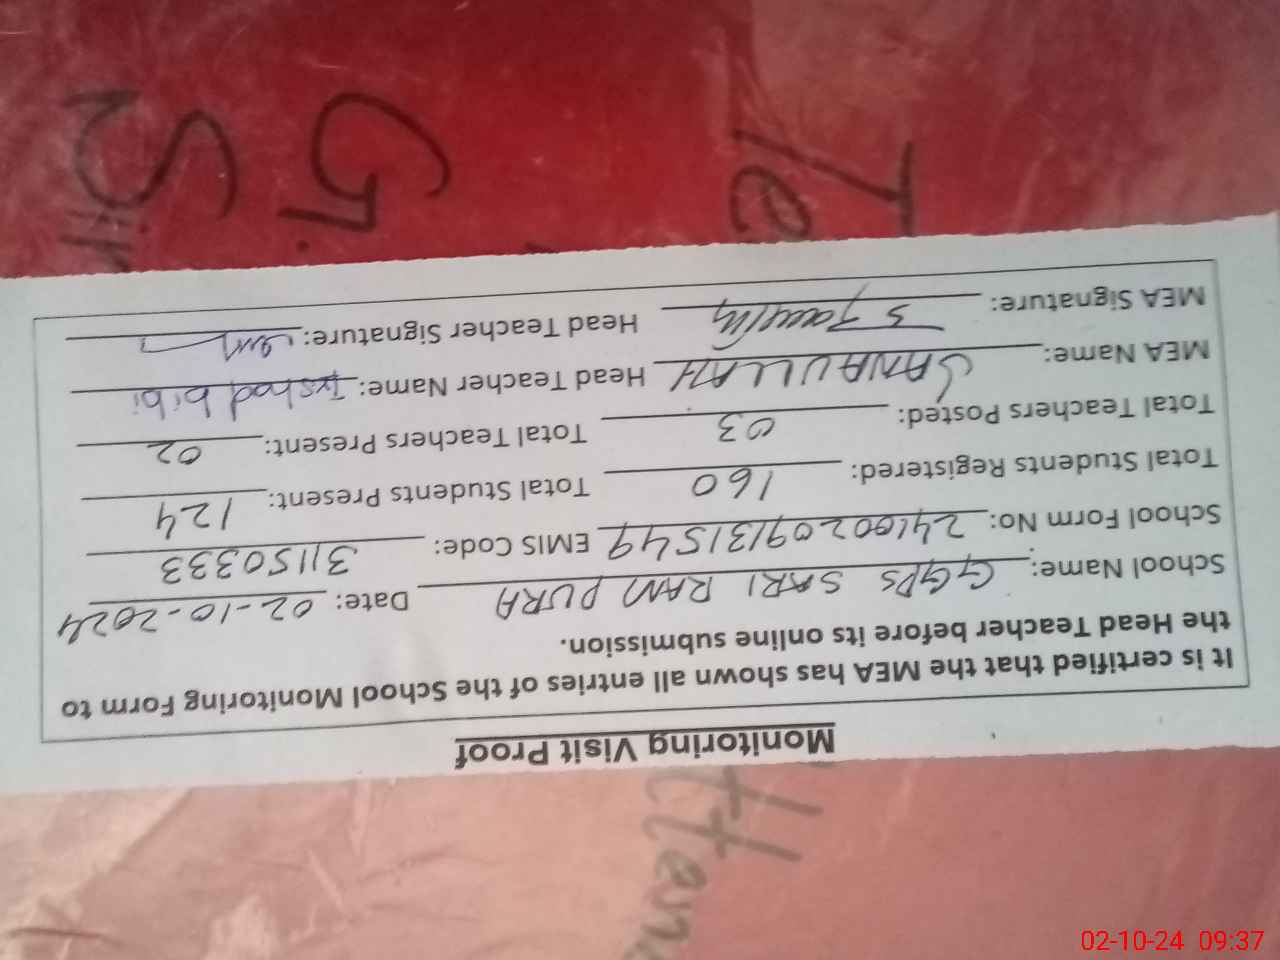 Monitoring Visit Proof
It is certified that the MEA has shown all entries of the School Monitoring Form to
the Head Teacher before its online submission.
School Name: GGPS SARI RAM PURA Date: 02-10-2024
School Form No: 24100209131549 EMIS Code: 31150333
Total Students Registered: 160 Total Students Present: 124
Total Teachers Posted: 03 Total Teachers Present: 02
MEA Name: SANAULLAH Head Teacher Name: Irshad bibi
MEA Signature: Head Teacher Signature:
Te G. S
02-10-24 09:37